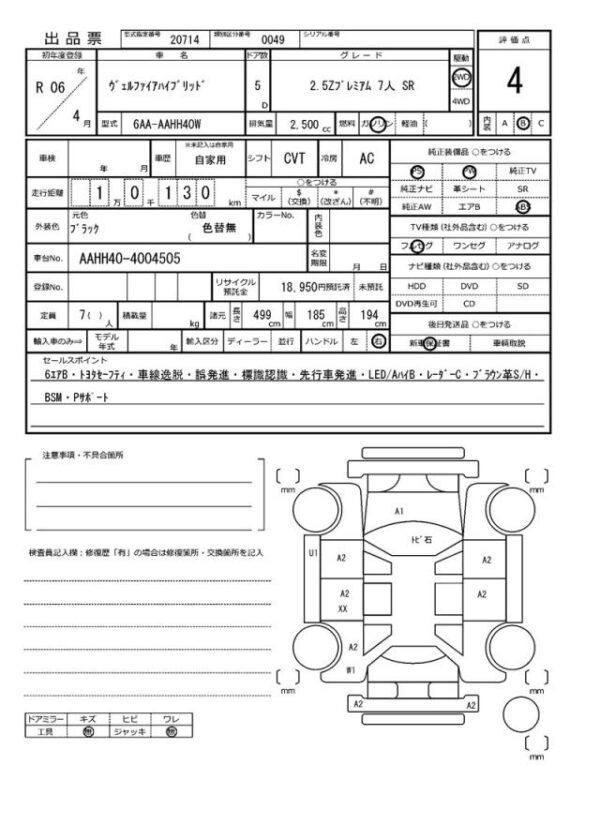 出品票 型式指定番号 20714 類別区分番号 0049 シリアル番号
評価点
4
内装 A B C
初年度登録 車名 ドア数 グレード 駆動
R 06 年 4 月 ヴェルファイアハイブリッド 5 D 2.5Zプレミアム 7人 SR 2WD 4WD
型式 6AA-AAHH40W 排気量 2,500 cc 燃料 ガソリン 軽油 ( )
車検 年 月 車歴 ※未記入は自家用 自家用 シフト CVT 冷房 AC
走行距離 1 万 0 千 130 km ○をつける マイル $ (交換) * (改ざん) # (不明)
外装色 元色 ブラック 色替 ( 色替無 ) カラーNo. 内装色
車台No. AAHH40-4004505 名変期限 月 日
登録No. リサイクル預託金 18,950円預託済 未預託
定員 7( )人 積載量 kg 諸元 長さ 499 cm 幅 185 cm 高さ 194 cm
輸入車のみ⇒ モデル年式 年 輸入区分 ディーラー 並行 ハンドル 左 右
純正装備品 ○をつける
PS PW 純正TV
純正ナビ 革シート SR
純正AW エアB ABS
TV種類 (社外品含む) ○をつける
フルセグ ワンセグ アナログ
ナビ種類 (社外品含む) ○をつける
HDD DVD SD
DVD再生可 CD
後日発送品 ○をつける
新車保証書 車輌取説
セールスポイント
6エアB・トヨタセーフティ・車線逸脱・誤発進・標識認識・先行車発進・LED/AハイB・レーダーC・ブラウン革S/H・
BSM・Pサポート
注意事項・不具合箇所
検査員記入欄：修復歴「有」の場合は修復箇所・交換箇所を記入
ドアミラー キズ ヒビ ワレ
工具 無 ジャッキ 無
mm mm
A1
トビ石
U1 A2 A2
A2 XX A2
A2 A2
W1
mm mm
A2 A2
mm